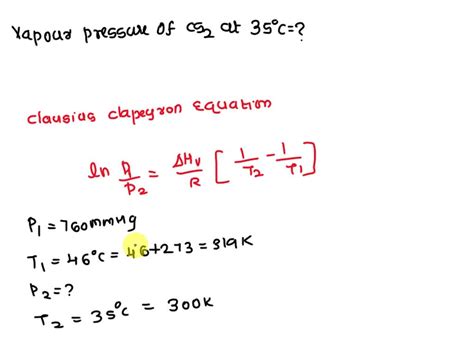 Vapour pressure of CS2 at 35°C=?
Clausius Clapeyron Equation
ln P1/P2 = ΔHv/R [ 1/T2 - 1/T1 ]
P1 = 760mmHg
T1 = 46°C = 46+273 = 319K
P2 = ?
T2 = 35°C = 300K